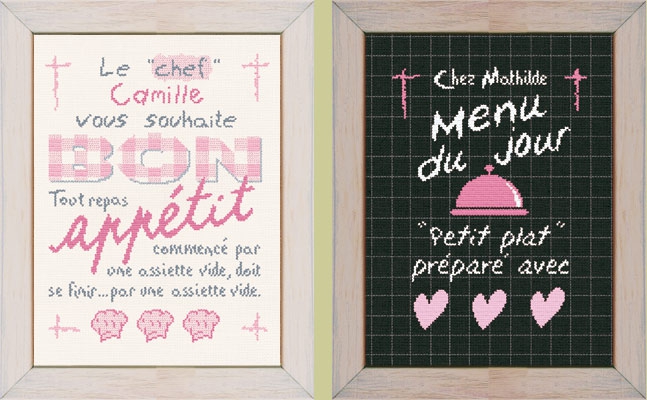 Le "chef"
Camille
vous souhaite
BON
Tout repas
appétit
commencé par
une assiette vide, doit
se finir...par une assiette vide.
Chez Mathilde
Menu
du jour
"Petit plat"
préparé avec